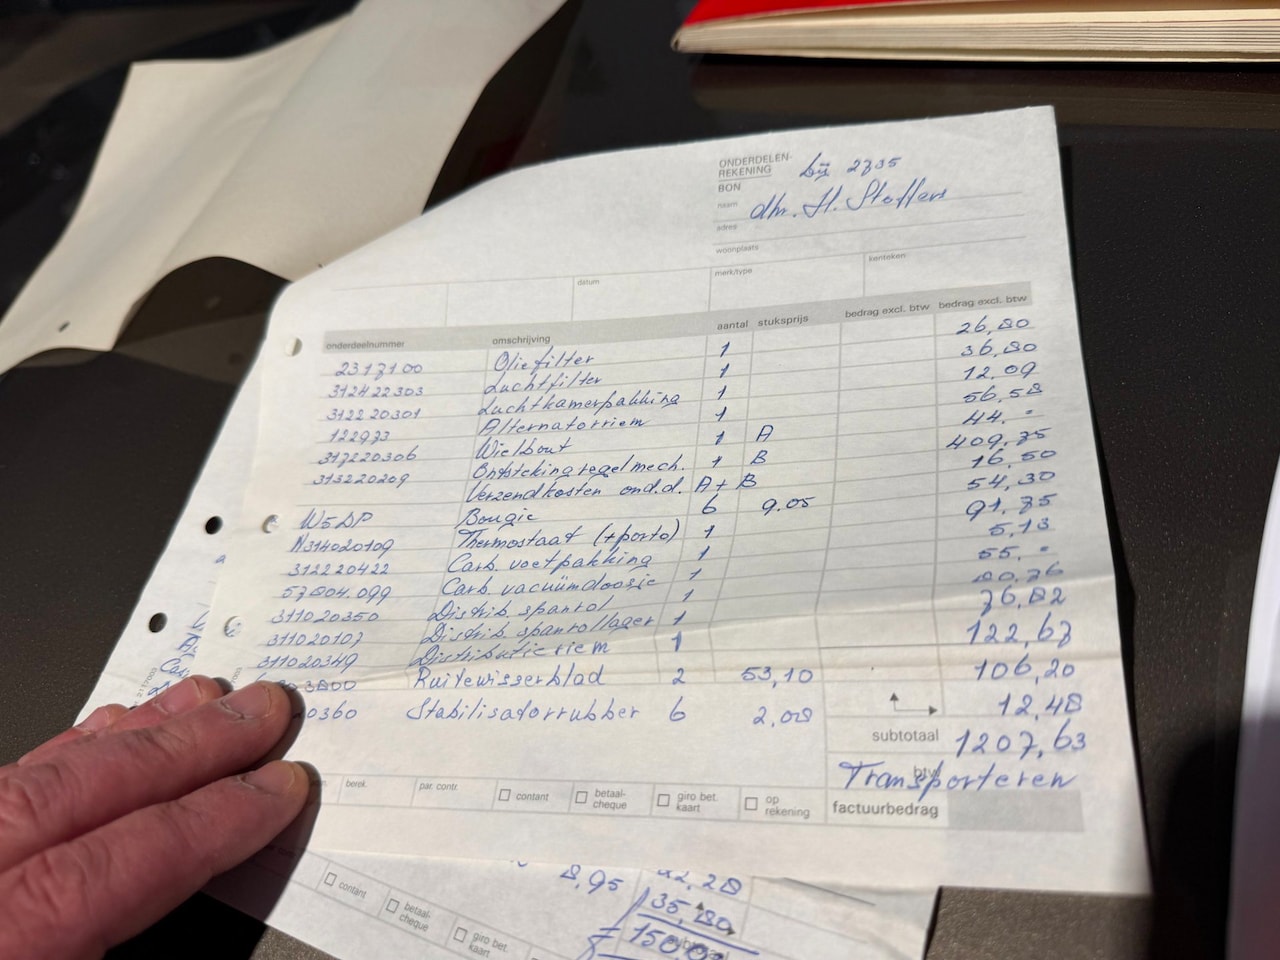 ONDERDELEN-
REKENING bij 2735
BON
naam dhr. H. Stoffers
adres
woonplaats
datum merk/type kenteken
onderdeelnummer omschrijving aantal stuksprijs bedrag excl. btw bedrag excl. btw
23171.00 Oliefilter 1 26,80
312422303 Luchtfilter 1 36,80
312220301 Luchtkamerpakking 1 12,09
122973 Alternatorriem 1 56,58
317220306 Wielbout 1 A 44.-
313220209 Ontstekingregelmech. 1 B 409,75
Verzendkosten ond.d. A+B 16,50
W5DP Bougie 6 9.05 54,30
N314020109 Thermostaat (+porto) 1 91,75
312220422 Carb. voetpakking 1 5,13
57804.099 Carb. vacuümdoosje 1 55.-
311020350 Distrib. spanrol 1 80,76
311020107 Distrib. spanrollager 1 76,82
311020349 Distributieriem 1 122,67
3800 Ruitewisserblad 2 53,10 106,20
20360 Stabilisatorrubber 6 2,08 12,48
subtotaal 1207,63
btw Transporteren
berek. par. contr. contant betaal-cheque giro bet. kaart op rekening factuurbedrag
8,95 22,28
35,80
contant betaal-cheque giro bet. kaart